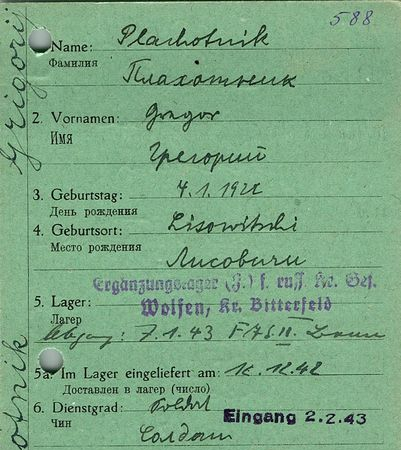 588
Name: Plachotnik
Фамилия
Плахотник
2. Vornamen: Gregor
Имя
Грегорий
3. Geburtstag: 4.1.192
День рождения
4. Geburtsort: Lisowitschi
Место рождения
Лисовичи
Ergänzungslager (J.) f. russ. Kr. Gef.
Wolfen, Kr. Bitterfeld
5. Lager:
Лагер
Abgang: 7.1.43
5a. Im Lager eingeliefert am: 12.42
Доставлен в лагер (число)
6. Dienstgrad: Soldat
Чин
Солдат
Eingang 2.2.43
Grigorij